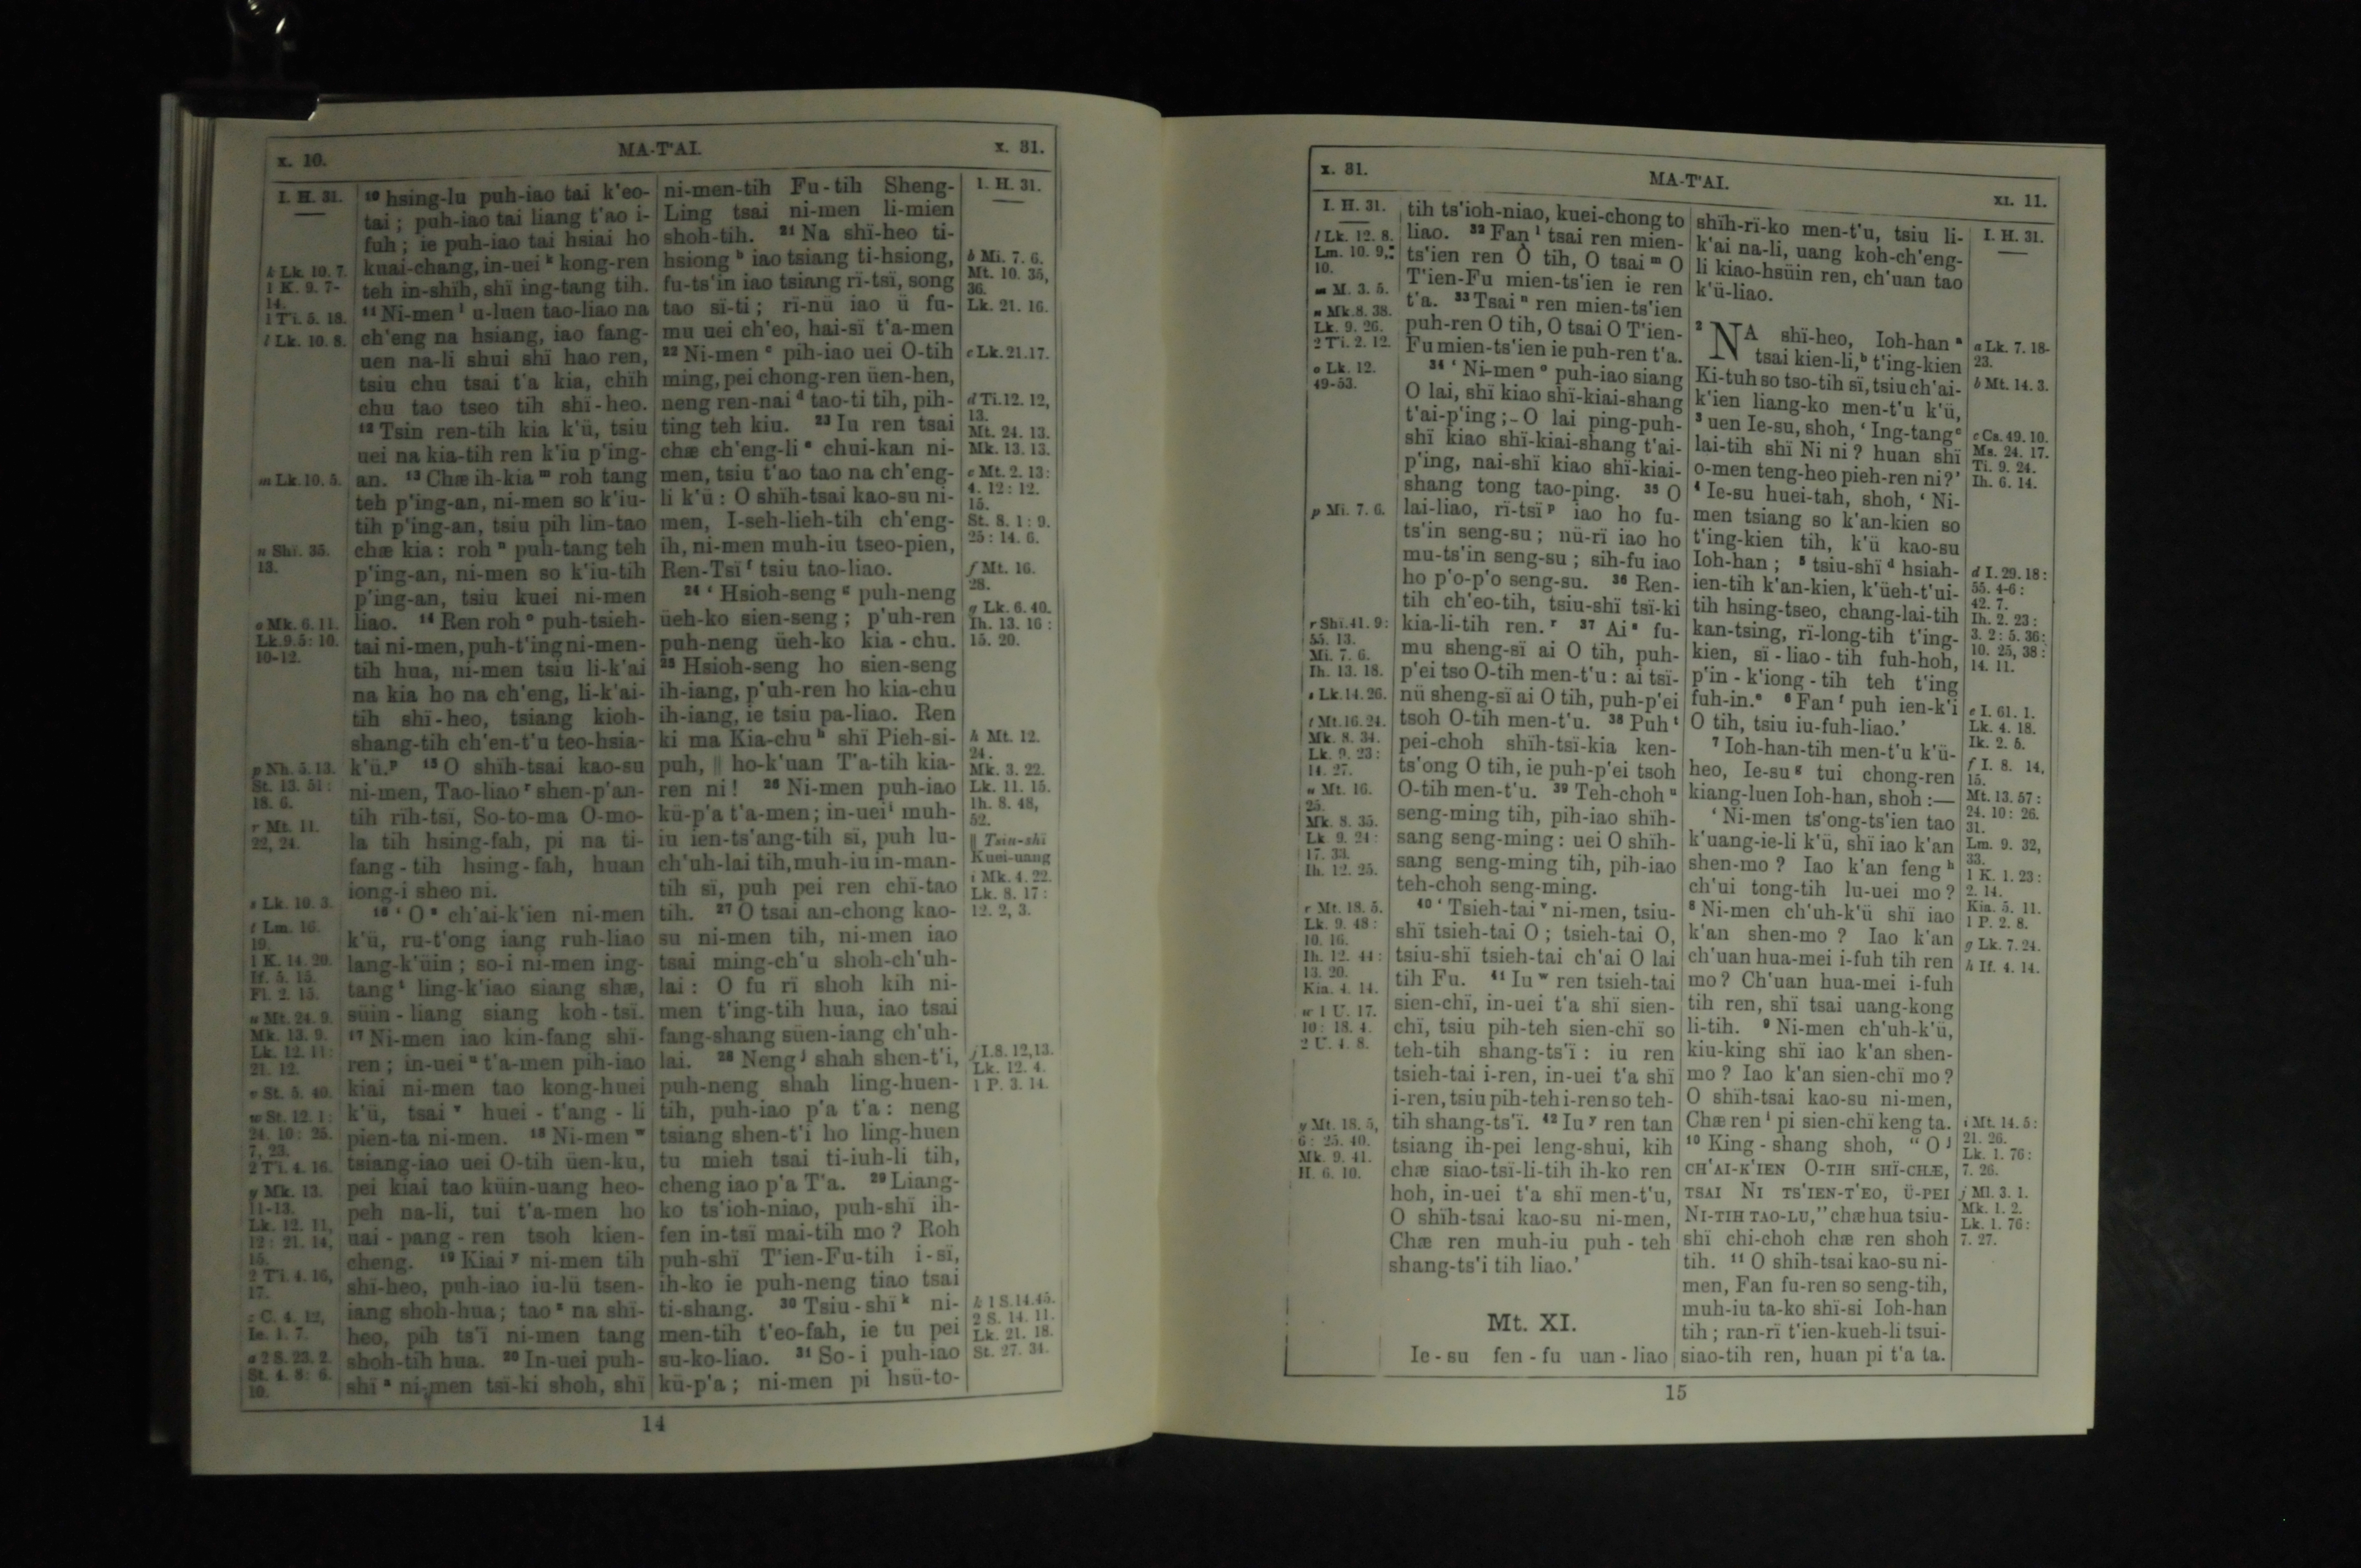 x. 10.
MA-T'AI.
x. 31.
I. H. 31.
k Lk. 10. 7.
1 K. 9. 7-
14.
1 Ti. 5. 18.
l Lk. 10. 8.
m Lk. 10. 5.
n Shï. 35.
13.
o Mk. 6. 11.
Lk. 9. 5: 10.
10-12.
p Nh. 5. 13.
St. 13. 51:
18. 6.
r Mt. 11.
22, 24.
s Lk. 10. 3.
t Lm. 16.
19.
1 K. 14. 20.
If. 5. 15.
Fl. 2. 15.
u Mt. 24. 9.
Mk. 13. 9.
Lk. 12. 11:
21. 12.
v St. 5. 40.
w St. 12. 1:
24. 10: 25.
7, 23.
2 Ti. 4. 16.
y Mk. 13.
11-13.
Lk. 12. 11,
12: 21. 14,
15.
2 Ti. 4. 16,
17.
z C. 4. 12,
Ie. 1. 7.
a 2 S. 23. 2.
St. 4. 8: 6.
10.
10 hsing-lu puh-iao tai k'eo-
tai; puh-iao tai liang t'ao i-
fuh; ie puh-iao tai hsiai ho
kuai-chang, in-uei k kong-ren
teh in-shïh, shï ing-tang tih.
11 Ni-men l u-luen tao-liao na
ch'eng na hsiang, iao fang-
uen na-li shui shï hao ren,
tsiu chu tsai t'a kia, chïh
chu tao tseo tih shï-heo.
12 Tsin ren-tih kia k'ü, tsiu
uei na kia-tih ren k'iu p'ing-
an. 13 Chæ ih-kia m roh tang
teh p'ing-an, ni-men so k'iu-
tih p'ing-an, tsiu pih lin-tao
chæ kia: roh n puh-tang teh
p'ing-an, ni-men so k'iu-tih
p'ing-an, tsiu kuei ni-men
liao. 14 Ren roh o puh-tsieh-
tai ni-men, puh-t'ing ni-men-
tih hua, ni-men tsiu li-k'ai
na kia ho na ch'eng, li-k'ai-
tih shï-heo, tsiang kioh-
shang-tih ch'en-t'u teo-hsia-
k'ü. p 15 O shïh-tsai kao-su
ni-men, Tao-liao r shen-p'an-
tih rïh-tsï, So-to-ma O-mo-
la tih hsing-fah, pi na ti-
fang-tih hsing-fah, huan
iong-i sheo ni.
16 'O s ch'ai-k'ien ni-men
k'ü, ru-t'ong iang ruh-liao
lang-k'üin; so-i ni-men ing-
tang t ling-k'iao siang shæ,
süin-liang siang koh-tsï.
17 Ni-men iao kin-fang shï-
ren; in-uei u t'a-men pih-iao
kiai ni-men tao kong-huei
k'ü, tsai v huei-t'ang-li
pien-ta ni-men. 18 Ni-men w
tsiang-iao uei O-tih üen-ku,
pei kiai tao küin-uang heo-
peh na-li, tui t'a-men ho
uai-pang-ren tsoh kien-
cheng. 19 Kiai y ni-men tih
shï-heo, puh-iao iu-lü tsen-
iang shoh-hua; tao z na shï-
heo, pih ts'ï ni-men tang
shoh-tih hua. 20 In-uei puh-
shï a ni-men tsï-ki shoh, shï
ni-men-tih Fu-tih Sheng-
Ling tsai ni-men li-mien
shoh-tih. 21 Na shï-heo ti-
hsiong b iao tsiang ti-hsiong,
fu-ts'in iao tsiang rï-tsï, song
tao sï-ti; rï-nü iao ü fu-
mu uei ch'eo, hai-sï t'a-men
22 Ni-men c pih-iao uei O-tih
ming, pei chong-ren üen-hen,
neng ren-nai d tao-ti tih, pih-
ting teh kiu. 23 Iu ren tsai
chæ ch'eng-li e chui-kan ni-
men, tsiu t'ao tao na ch'eng-
li k'ü: O shïh-tsai kao-su ni-
men, I-seh-lieh-tih ch'eng-
ih, ni-men muh-iu tseo-pien,
Ren-Tsï f tsiu tao-liao.
24 'Hsioh-seng g puh-neng
üeh-ko sien-seng; p'uh-ren
puh-neng üeh-ko kia-chu.
25 Hsioh-seng ho sien-seng
ih-iang, p'uh-ren ho kia-chu
ih-iang, ie tsiu pa-liao. Ren
ki ma Kia-chu h shï Pieh-si-
puh, || ho-k'uan T'a-tih kia-
ren ni! 26 Ni-men puh-iao
kü-p'a t'a-men; in-uei i muh-
iu ien-ts'ang-tih sï, puh lu-
ch'uh-lai tih, muh-iu in-man-
tih sï, puh pei ren chï-tao
tih. 27 O tsai an-chong kao-
su ni-men tih, ni-men iao
tsai ming-ch'u shoh-ch'uh-
lai: O fu rï shoh kih ni-
men t'ing-tih hua, iao tsai
fang-shang süen-iang ch'uh-
lai. 28 Neng j shah shen-t'i,
puh-neng shah ling-huen-
tih, puh-iao p'a t'a: neng
tsiang shen-t'i ho ling-huen
tu mieh tsai ti-iuh-li tih,
cheng iao p'a T'a. 29 Liang-
ko ts'ioh-niao, puh-shï ih-
fen in-tsï mai-tih mo? Roh
puh-shï T'ien-Fu-tih i-sï,
ih-ko ie puh-neng tiao tsai
ti-shang. 30 Tsiu-shï k ni-
men-tih t'eo-fah, ie tu pei
su-ko-liao. 31 So-i puh-iao
kü-p'a; ni-men pi hsü-to-
I. H. 31.
b Mi. 7. 6.
Mt. 10. 35,
36.
Lk. 21. 16.
c Lk. 21. 17.
d Ti. 12. 12,
13.
Mt. 24. 13.
Mk. 13. 13.
e Mt. 2. 13:
4. 12: 12.
15.
St. 8. 1: 9.
25: 14. 6.
f Mt. 16.
28.
g Lk. 6. 40.
Ih. 13. 16:
15. 20.
h Mt. 12.
24.
Mk. 3. 22.
Lk. 11. 15.
Ih. 8. 48,
52.
|| Tsin-shï
Kuei-uang
i Mk. 4. 22.
Lk. 8. 17:
12. 2, 3.
j I. 8. 12, 13.
Lk. 12. 4.
1 P. 3. 14.
k 1 S. 14. 45.
2 S. 14. 11.
Lk. 21. 18.
St. 27. 34.
14
x. 31.
MA-T'AI.
XI. 11.
I. H. 31.
l Lk. 12. 8.
Lm. 10. 9,
10.
m M. 3. 5.
n Mk. 8. 38.
Lk. 9. 26.
2 Ti. 2. 12.
o Lk. 12.
49-53.
p Mi. 7. 6.
r Shï. 41. 9:
55. 13.
Mi. 7. 6.
Ih. 13. 18.
s Lk. 14. 26.
t Mt. 16. 24.
Mk. 8. 34.
Lk. 9. 23:
14. 27.
u Mt. 16.
25.
Mk. 8. 35.
Lk. 9. 24:
17. 33.
Ih. 12. 25.
r Mt. 18. 5.
Lk. 9. 48:
10. 16.
Ih. 12. 44:
13. 20.
Kia. 4. 14.
w 1 U. 17.
10: 18. 4.
2 U. 4. 8.
y Mt. 18. 5,
6: 25. 40.
Mk. 9. 41.
H. 6. 10.
tih ts'ioh-niao, kuei-chong to
liao. 32 Fan l tsai ren mien-
ts'ien ren O tih, O tsai m O
T'ien-Fu mien-ts'ien ie ren
t'a. 33 Tsai n ren mien-ts'ien
puh-ren O tih, O tsai O T'ien-
Fu mien-ts'ien ie puh-ren t'a.
34 'Ni-men o puh-iao siang
O lai, shï kiao shï-kiai-shang
t'ai-p'ing;-O lai ping-puh-
shï kiao shï-kiai-shang t'ai-
p'ing, nai-shï kiao shï-kiai-
shang tong tao-ping. 35 O
lai-liao, rï-tsï p iao ho fu-
ts'in seng-su; nü-rï iao ho
mu-ts'in seng-su; sih-fu iao
ho p'o-p'o seng-su. 36 Ren-
tih ch'eo-tih, tsiu-shï tsï-ki
kia-li-tih ren. r 37 Ai s fu-
mu sheng-sï ai O tih, puh-
p'ei tso O-tih men-t'u: ai tsï-
nü sheng-sï ai O tih, puh-p'ei
tsoh O-tih men-t'u. 38 Puh t
pei-choh shïh-tsï-kia ken-
ts'ong O tih, ie puh-p'ei tsoh
O-tih men-t'u. 39 Teh-choh u
seng-ming tih, pih-iao shïh-
sang seng-ming: uei O shïh-
sang seng-ming tih, pih-iao
teh-choh seng-ming.
40 'Tsieh-tai v ni-men, tsiu-
shï tsieh-tai O; tsieh-tai O,
tsiu-shï tsieh-tai ch'ai O lai
tih Fu. 41 Iu w ren tsieh-tai
sien-chï, in-uei t'a shï sien-
chï, tsiu pih-teh sien-chï so
teh-tih shang-ts'ï: iu ren
tsieh-tai i-ren, in-uei t'a shï
i-ren, tsiu pih-teh i-ren so teh-
tih shang-ts'ï. 42 Iu y ren tan
tsiang ih-pei leng-shui, kih
chæ siao-tsï-li-tih ih-ko ren
hoh, in-uei t'a shï men-t'u,
O shïh-tsai kao-su ni-men,
Chæ ren muh-iu puh-teh
shang-ts'i tih liao.'
Mt. XI.
Ie-su fen-fu uan-liao
shïh-rï-ko men-t'u, tsiu li-
k'ai na-li, uang koh-ch'eng-
li kiao-hsüin ren, ch'uan tao
k'ü-liao.
2 NA shï-heo, Ioh-han a
tsai kien-li, b t'ing-kien
Ki-tuh so tso-tih sï, tsiu ch'ai-
k'ien liang-ko men-t'u k'ü,
3 uen Ie-su, shoh, 'Ing-tang c
lai-tih shï Ni ni? huan shï
o-men teng-heo pieh-ren ni?'
4 Ie-su huei-tah, shoh, 'Ni-
men tsiang so k'an-kien so
t'ing-kien tih, k'ü kao-su
Ioh-han; 5 tsiu-shï d hsiah-
ien-tih k'an-kien, k'üeh-t'ui-
tih hsing-tseo, chang-lai-tih
kan-tsing, rï-long-tih t'ing-
kien, sï-liao-tih fuh-hoh,
p'in-k'iong-tih teh t'ing
fuh-in. e 6 Fan f puh ien-k'i
O tih, tsiu iu-fuh-liao.'
7 Ioh-han-tih men-t'u k'ü-
heo, Ie-su g tui chong-ren
kiang-luen Ioh-han, shoh:—
'Ni-men ts'ong-ts'ien tao
k'uang-ie-li k'ü, shï iao k'an
shen-mo? Iao k'an feng h
ch'ui tong-tih lu-uei mo?
8 Ni-men ch'uh-k'ü shï iao
k'an shen-mo? Iao k'an
ch'uan hua-mei i-fuh tih ren
mo? Ch'uan hua-mei i-fuh
tih ren, shï tsai uang-kong
li-tih. 9 Ni-men ch'uh-k'ü,
kiu-king shï iao k'an shen-
mo? Iao k'an sien-chï mo?
O shïh-tsai kao-su ni-men,
Chæ ren i pi sien-chï keng ta.
10 King-shang shoh, "O j
CH'AI-K'IEN O-TIH SHÏ-CHÆ,
TSAI NI TS'IEN-T'EO, Ü-PEI
NI-TIH TAO-LU," chæ hua tsiu-
shï chi-choh chæ ren shoh
tih. 11 O shïh-tsai kao-su ni-
men, Fan fu-ren so seng-tih,
muh-iu ta-ko shï-si Ioh-han
tih; ran-rï t'ien-kueh-li tsui-
siao-tih ren, huan pi t'a ta.
I. H. 31.
a Lk. 7. 18-
23.
b Mt. 14. 3.
c Cs. 49. 10.
Ms. 24. 17.
Ti. 9. 24.
Ih. 6. 14.
d I. 29. 18:
55. 4-6:
42. 7.
Ih. 2. 23:
3. 2: 5. 36:
10. 25, 38:
14. 11.
e I. 61. 1.
Lk. 4. 18.
Ik. 2. 5.
f I. 8. 14,
15.
Mt. 13. 57:
24. 10: 26.
31.
Lm. 9. 32,
33.
1 K. 1. 23:
2. 14.
Kia. 5. 11.
1 P. 2. 8.
g Lk. 7. 24.
h If. 4. 14.
i Mt. 14. 5:
21. 26.
Lk. 1. 76:
7. 26.
j Ml. 3. 1.
Mk. 1. 2.
Lk. 1. 76:
7. 27.
15